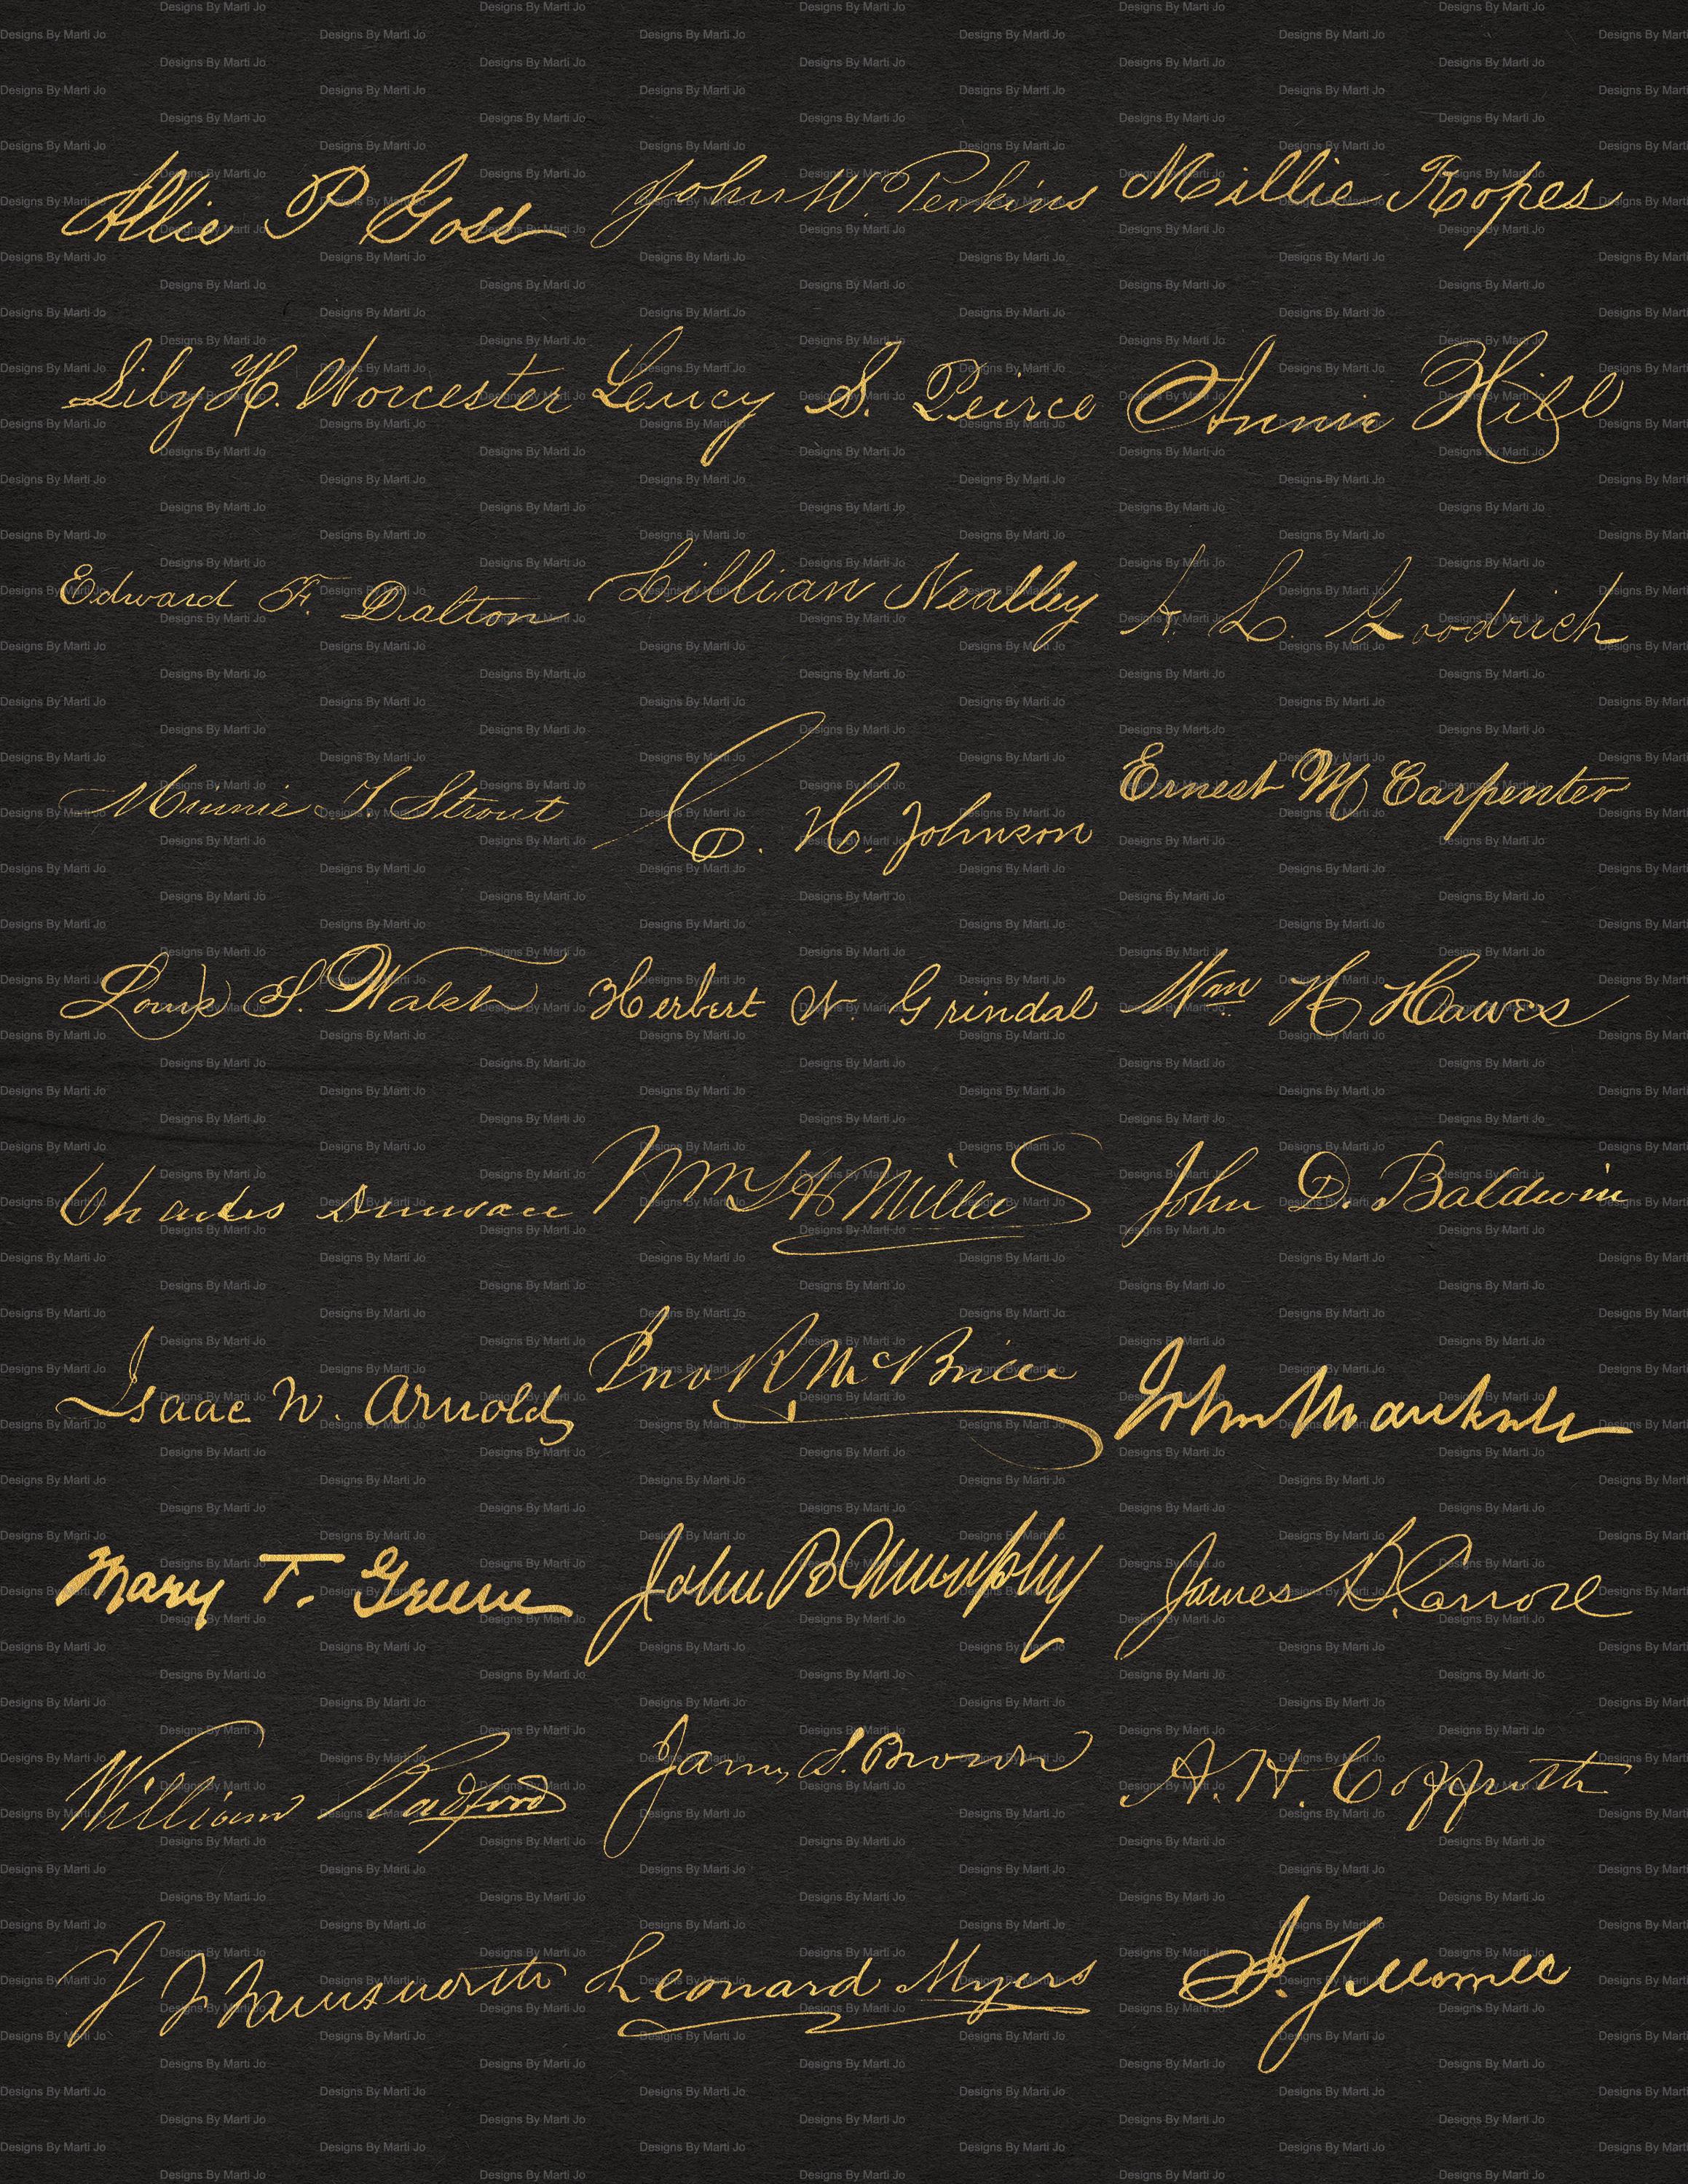 Designs By Marti Jo
Allie P Goss John W. Perkins Millie Ropes
Lily H. Worcester Lucy S. Peirce Annie Hill
Edward F. Dalton Lillian Nealley A. L. Goodrich
Minnie F. Strout C. H. Johnson Ernest M Carpenter
Louis S. Walsh Herbert W. Grindal Wm H Hawes
Charles Wm H Miller John D. Baldwin
Isaac N. Arnold Jno R McBride John
Mary T. Greene John B Murphy James
William Radford James S. Brown A. H. Coffroth
Leonard Myers